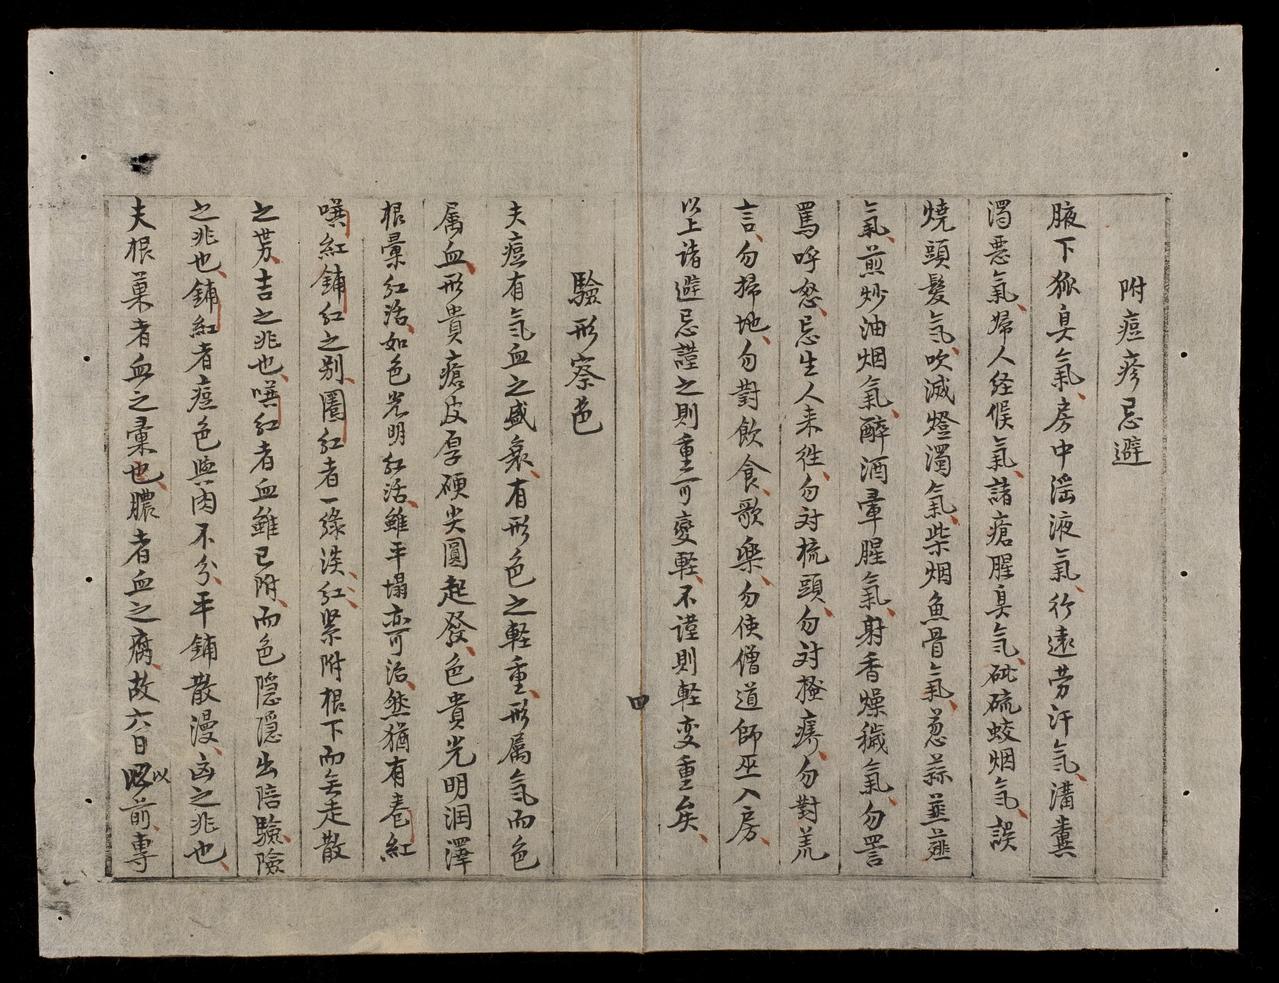 附痘疹忌避
腋下狐臭氣房中滛液氣行遠勞汗氣溝糞
濁惡氣婦人经候氣諸瘡腥臭气硫蚊烟气誤
燒頭髮气吹滅燈濁氣柴烟魚骨氣葱蒜韮薤
氣煎炒油烟氣醉酒葷腥氣射香燥穢氣勿詈
罵呼怒忌生人来徃勿対梳頭勿対搔痒勿對荒
言勿掃地勿對飲食歌樂勿使僧道師巫入房
以上諸避忌謹之則重可變軽不謹則軽变重矣
四
驗形察色
夫痘有气血之盛衰有形色之軽重形属氣而色
属血形貴瘡皮厚硬尖圓起發色貴光明润澤
根窠红活如色光明红活雖平塌亦可治然猶有圈紅
噀紅鋪红之别圈红者一綫淡红紧附根下而无走散
之势吉之兆也噀红者血雖已附而色隠隠出陷驗險
之兆也鋪紅者痘色與肉不分平鋪散漫凶之兆也
夫根窠者血之窠也膿者血之腐故六日以前專